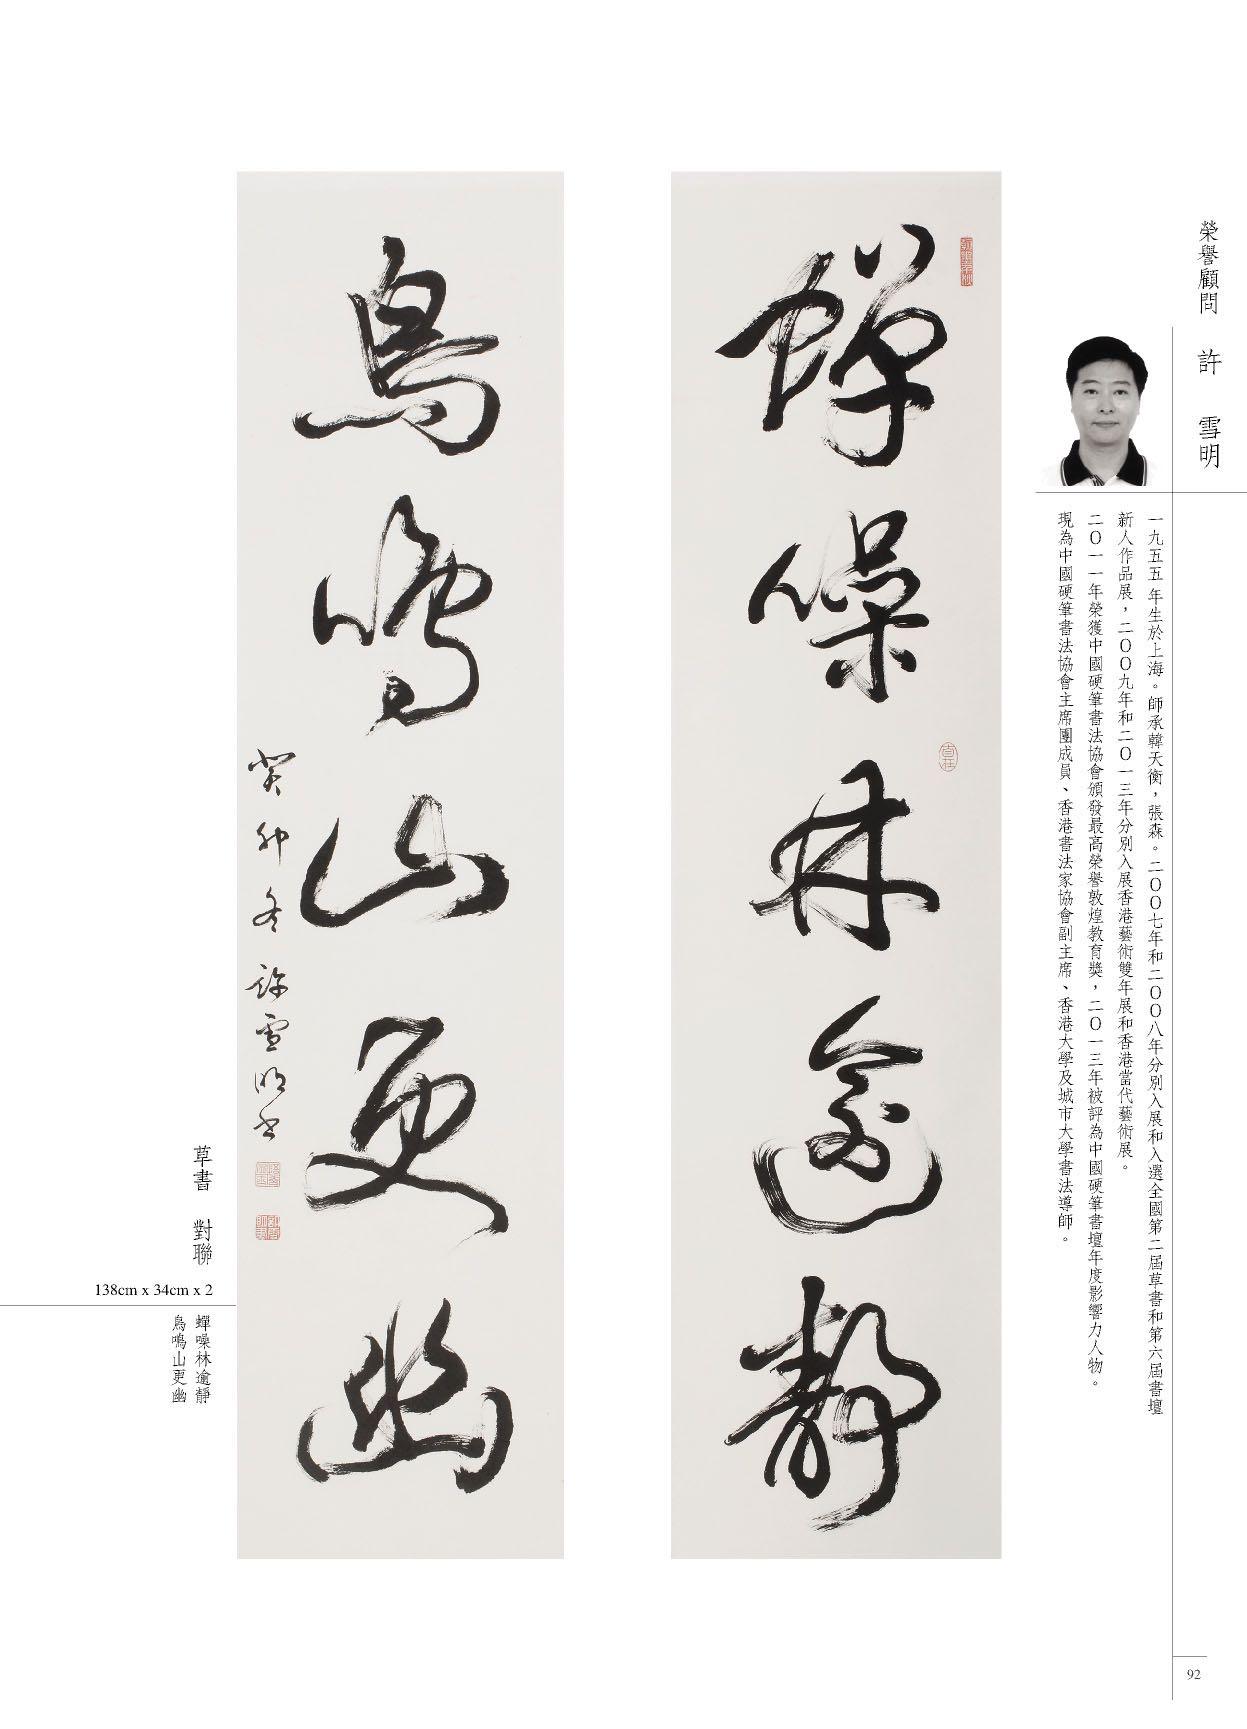 榮譽顧問 許 雪明
一九五五年生於上海。師承韓天衡，張森。二００七年和二００八年分別入展和入選全國第二屆草書和第六屆書壇
新人作品展，二００九年和二０一三年分別入展香港藝術雙年展和香港當代藝術展。
二０一一年榮獲中國硬筆書法協會頒發最高榮譽敦煌教育獎，二０一三年被評為中國硬筆書壇年度影響力人物。
現為中國硬筆書法協會主席團成員、香港書法家協會副主席、香港大學及城市大學書法導師。
蟬噪林逾靜
鳥鳴山更幽
癸卯冬許雪明書
草書 對聯
138cm x 34cm x 2
蟬噪林逾靜
鳥鳴山更幽
92